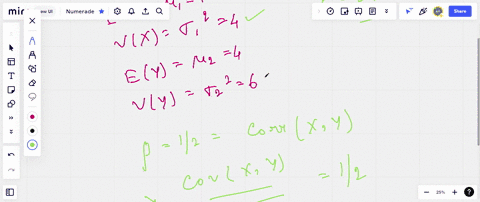 Numerade
Share
V(X) = σ₁² = 4 ✓
E(Y) = μ₂ = 4
V(Y) = σ₂² = 6
ρ = 1/2 = Corr (X, Y)
Cov (X, Y) = 1/2
25%